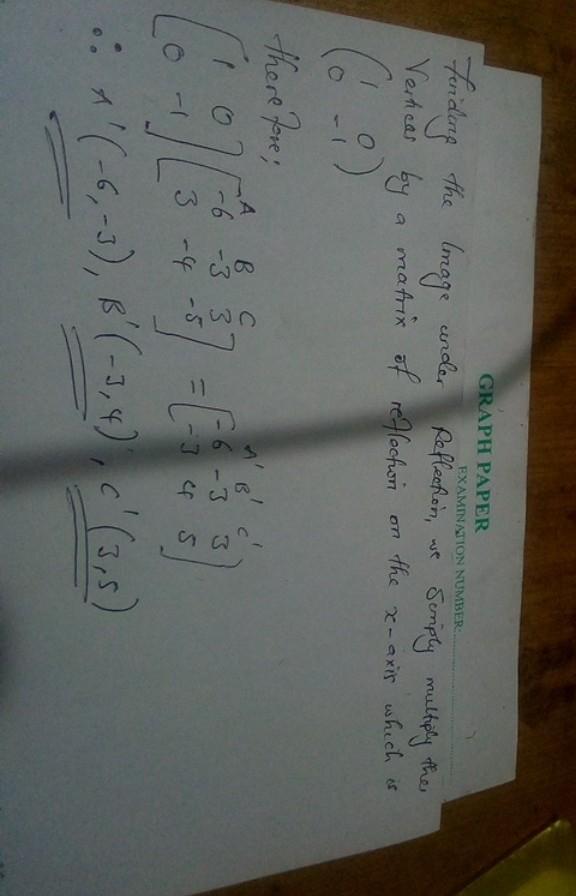 GRAPH PAPER
EXAMINATION NUMBER:
Finding the Image under Reflection, we Simply multiply the
Vertices by a matrix of reflection on the x-axis which is
( 1 0
0 -1 )
therefore;
A B C A' B' C'
[ 1 0 ] [ -6 -3 3 ] = [ -6 -3 3 ]
0 -1 3 -4 -5 -3 4 5
∴ A'(-6,-3), B'(-3,4), C'(3,5)